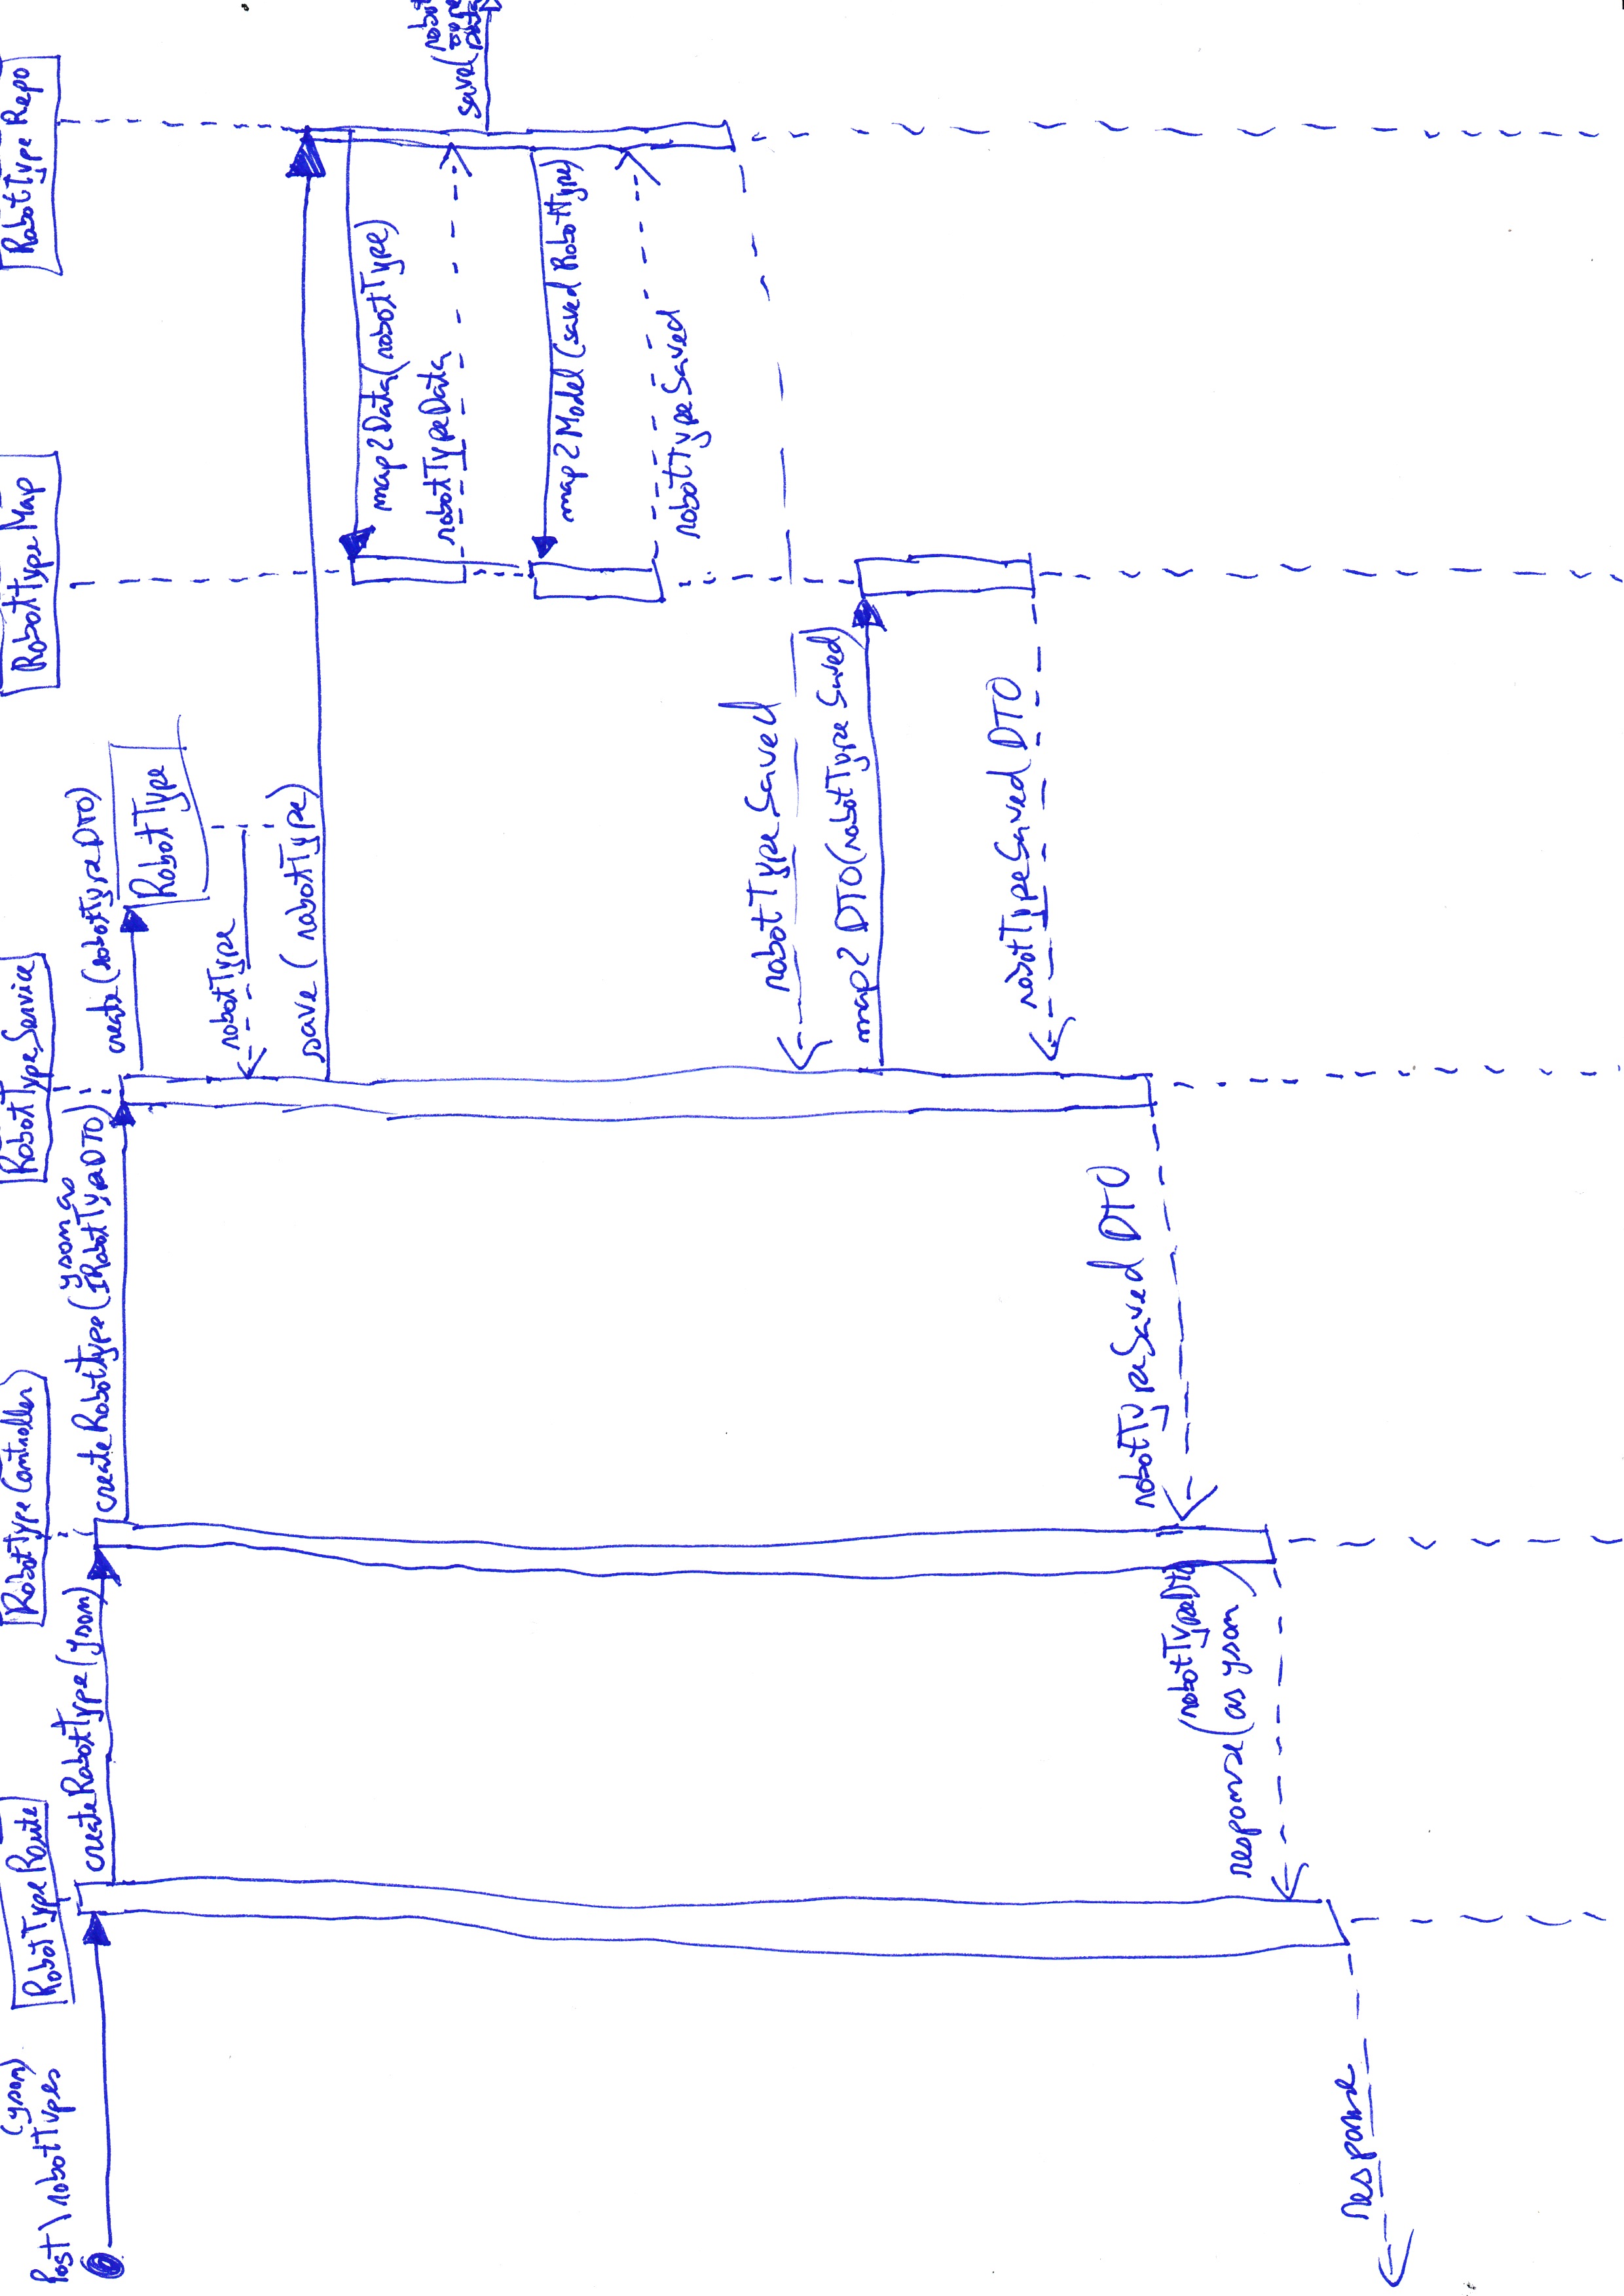 (json)
Post\robotTypes
RobotTypeRoute
RobotTypeController
RobotTypeService
RobotTypeMap
RobotTypeRepo
createRobotType(json)
createRobotType(json as
IRobotTypeDTO)
create(robotTypeDTO)
RobotType
robotType
save(robotType)
map2Data(robotType)
robotTypeData
save(robot
type
Data
map2Model(savedRobotType)
robotTypeSaved
robotTypeSaved
map2DTO(robotTypeSaved)
robotTypeSavedDTO
robotTypeSavedDTO
response(robotTypeDto
as json)
response